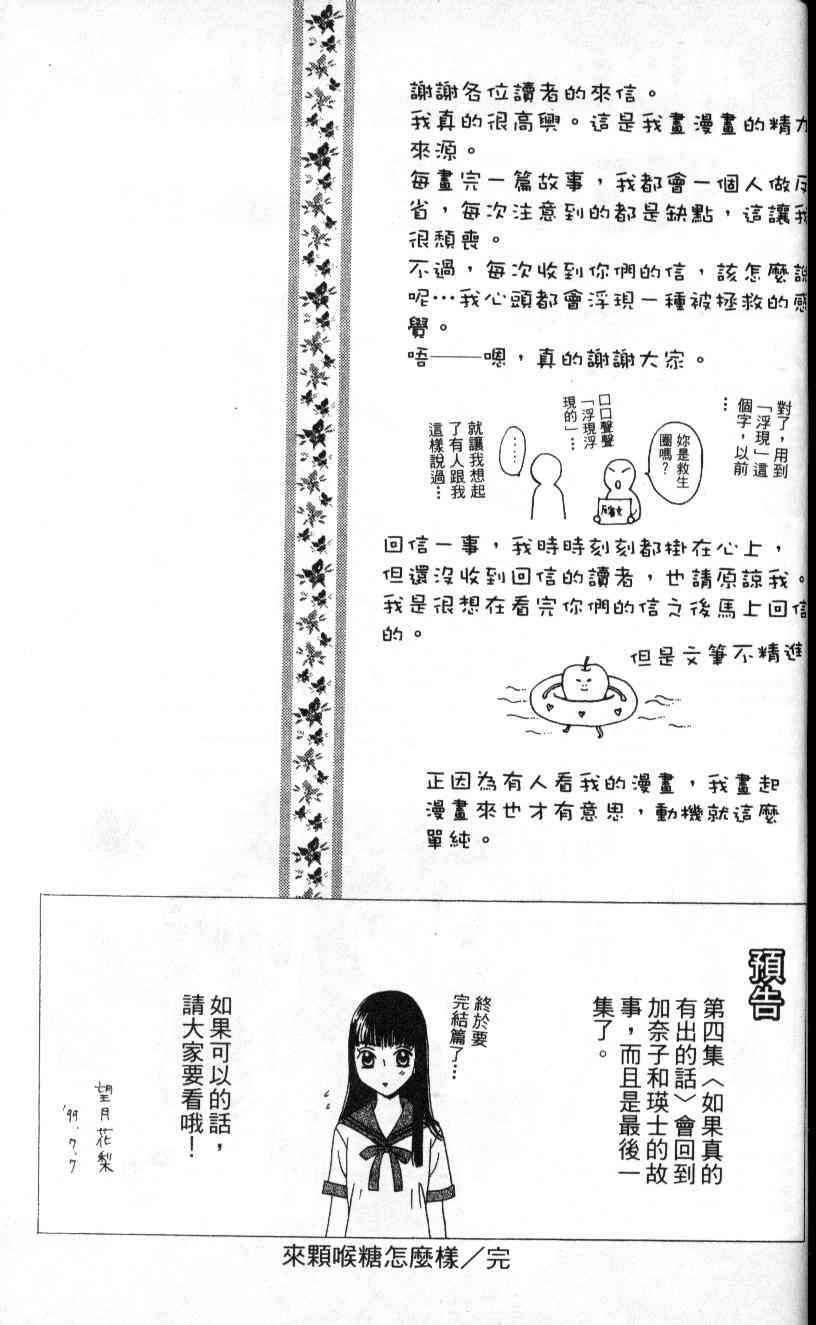 謝謝各位讀者的來信。
我真的很高興。這是我畫漫畫的精力
來源。
每畫完一篇故事，我都會一個人做反
省，每次注意到的都是缺點，這讓我
很頹喪。
不過，每次收到你們的信，該怎麼說
呢…我心頭都會浮現一種被拯救的感
覺。
唔——嗯，真的謝謝大家。
對了，用到
「浮現」這
個字，以前
…
妳是救生
圈嗎？
口口聲聲
「浮現浮
現的」…
……
就讓我想起
了有人跟我
這樣說過…
回信一事，我時時刻刻都掛在心上，
但還沒收到回信的讀者，也請原諒我。
我是很想在看完你們的信之後馬上回信
的。
但是文筆不精進
正因為有人看我的漫畫，我畫起
漫畫來也才有意思，動機就這麼
單純。
預告
第四集〈如果真的
有出的話〉會回到
加奈子和瑛士的故
事，而且是最後一
集了。
終於要
完結篇了…
如果可以的話，
請大家要看哦！
望月花梨
'99.7.7
來顆喉糖怎麼樣／完